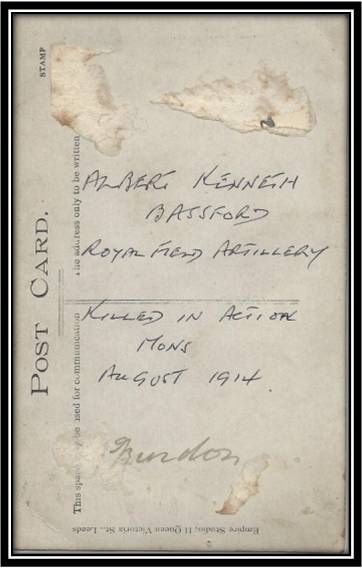 STAMP
POST CARD.
The address only to be written
This space may be used for communication
ALBERT KENNETH
BASSFORD
ROYAL FIELD ARTILLERY
KILLED IN ACTION
MONS
AUGUST 1914.
Empire Studio, 11 Queen Victoria St., Leeds